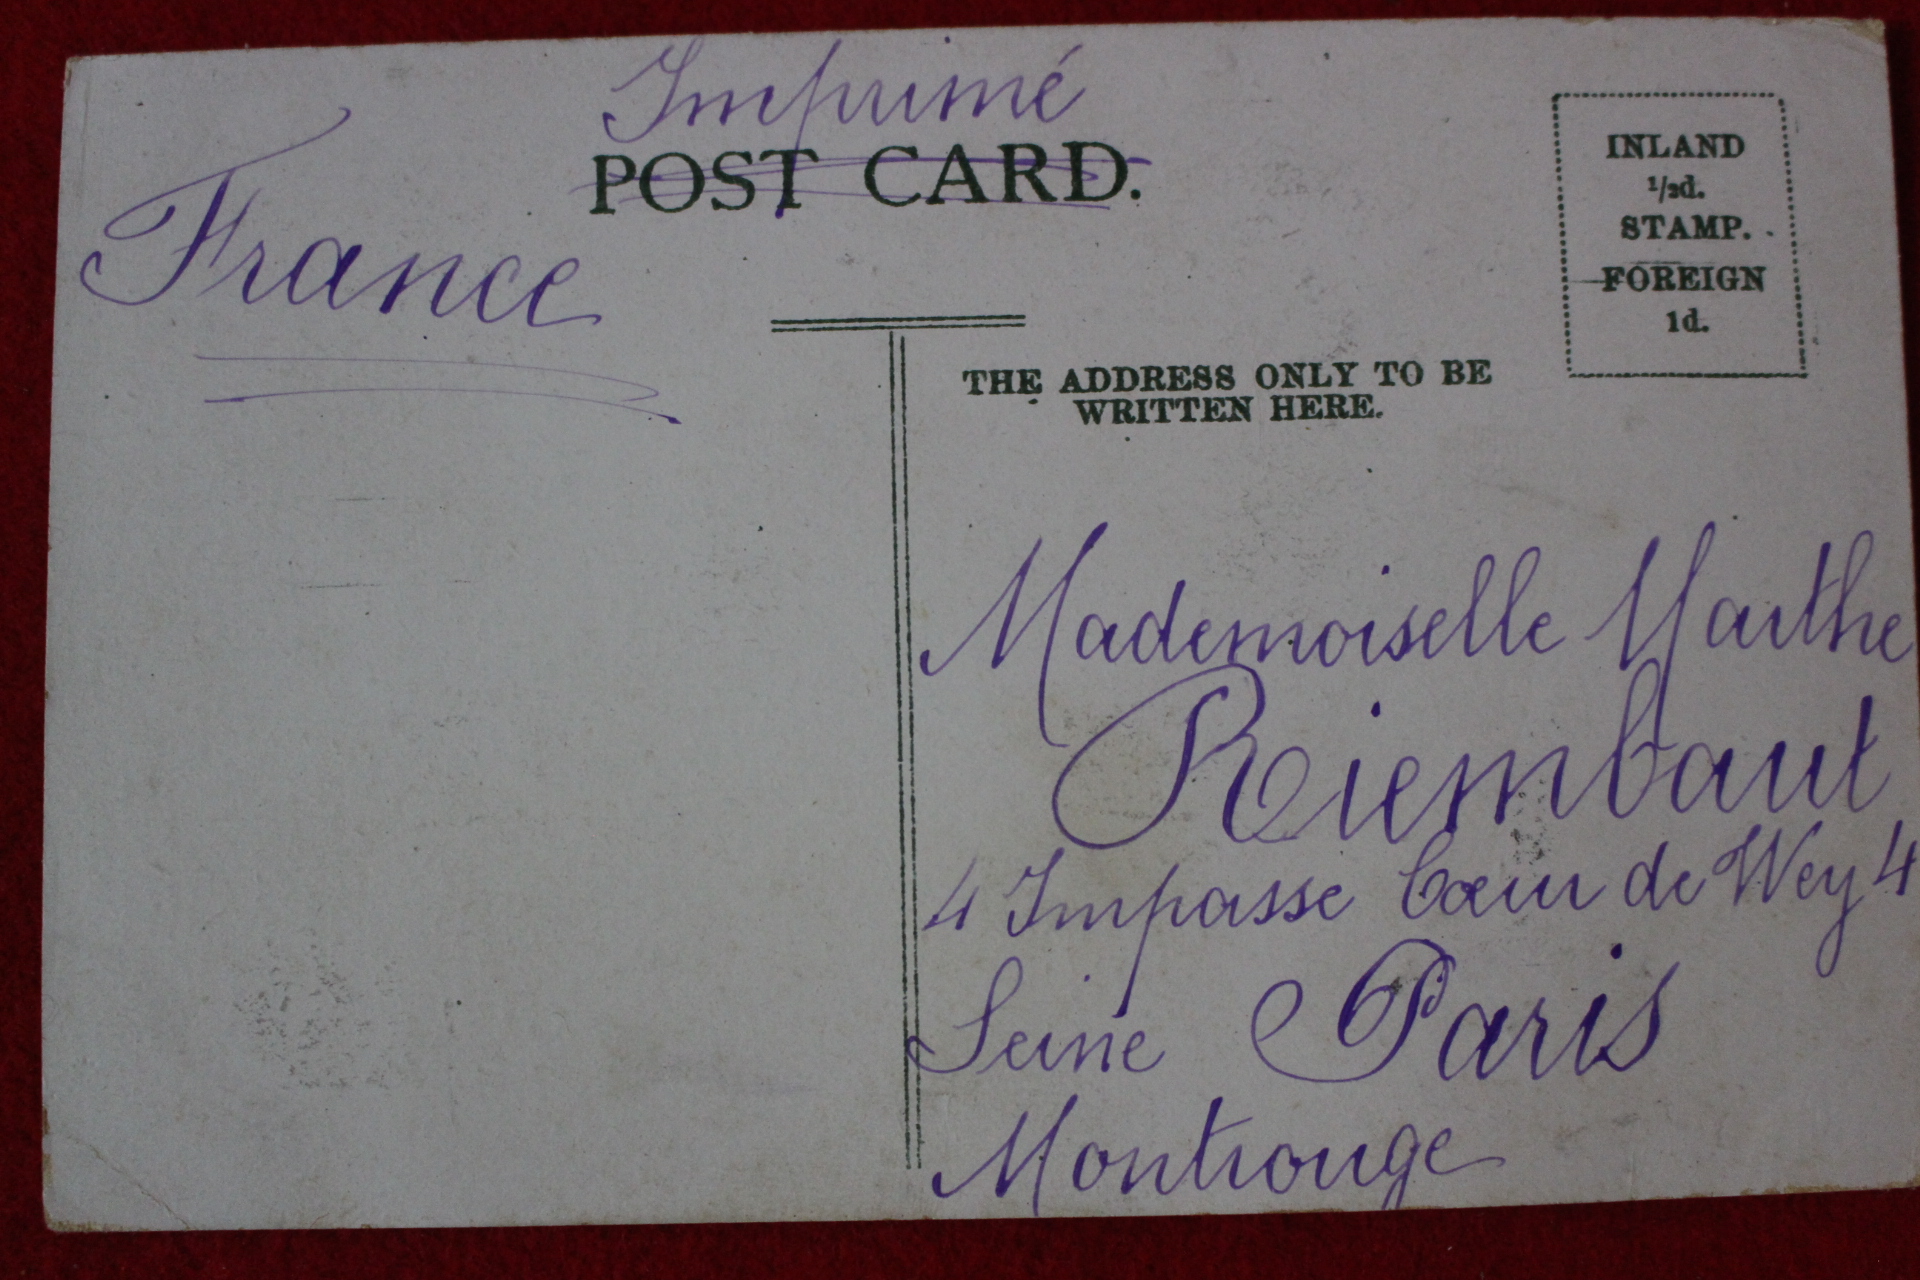 Imprimé
POST CARD.
France
INLAND
½d.
STAMP.
FOREIGN
1d.
THE ADDRESS ONLY TO BE
WRITTEN HERE.
Mademoiselle Marthe
Riembaut
4 Impasse Cœur de Wey 4
Seine Paris
Montrouge